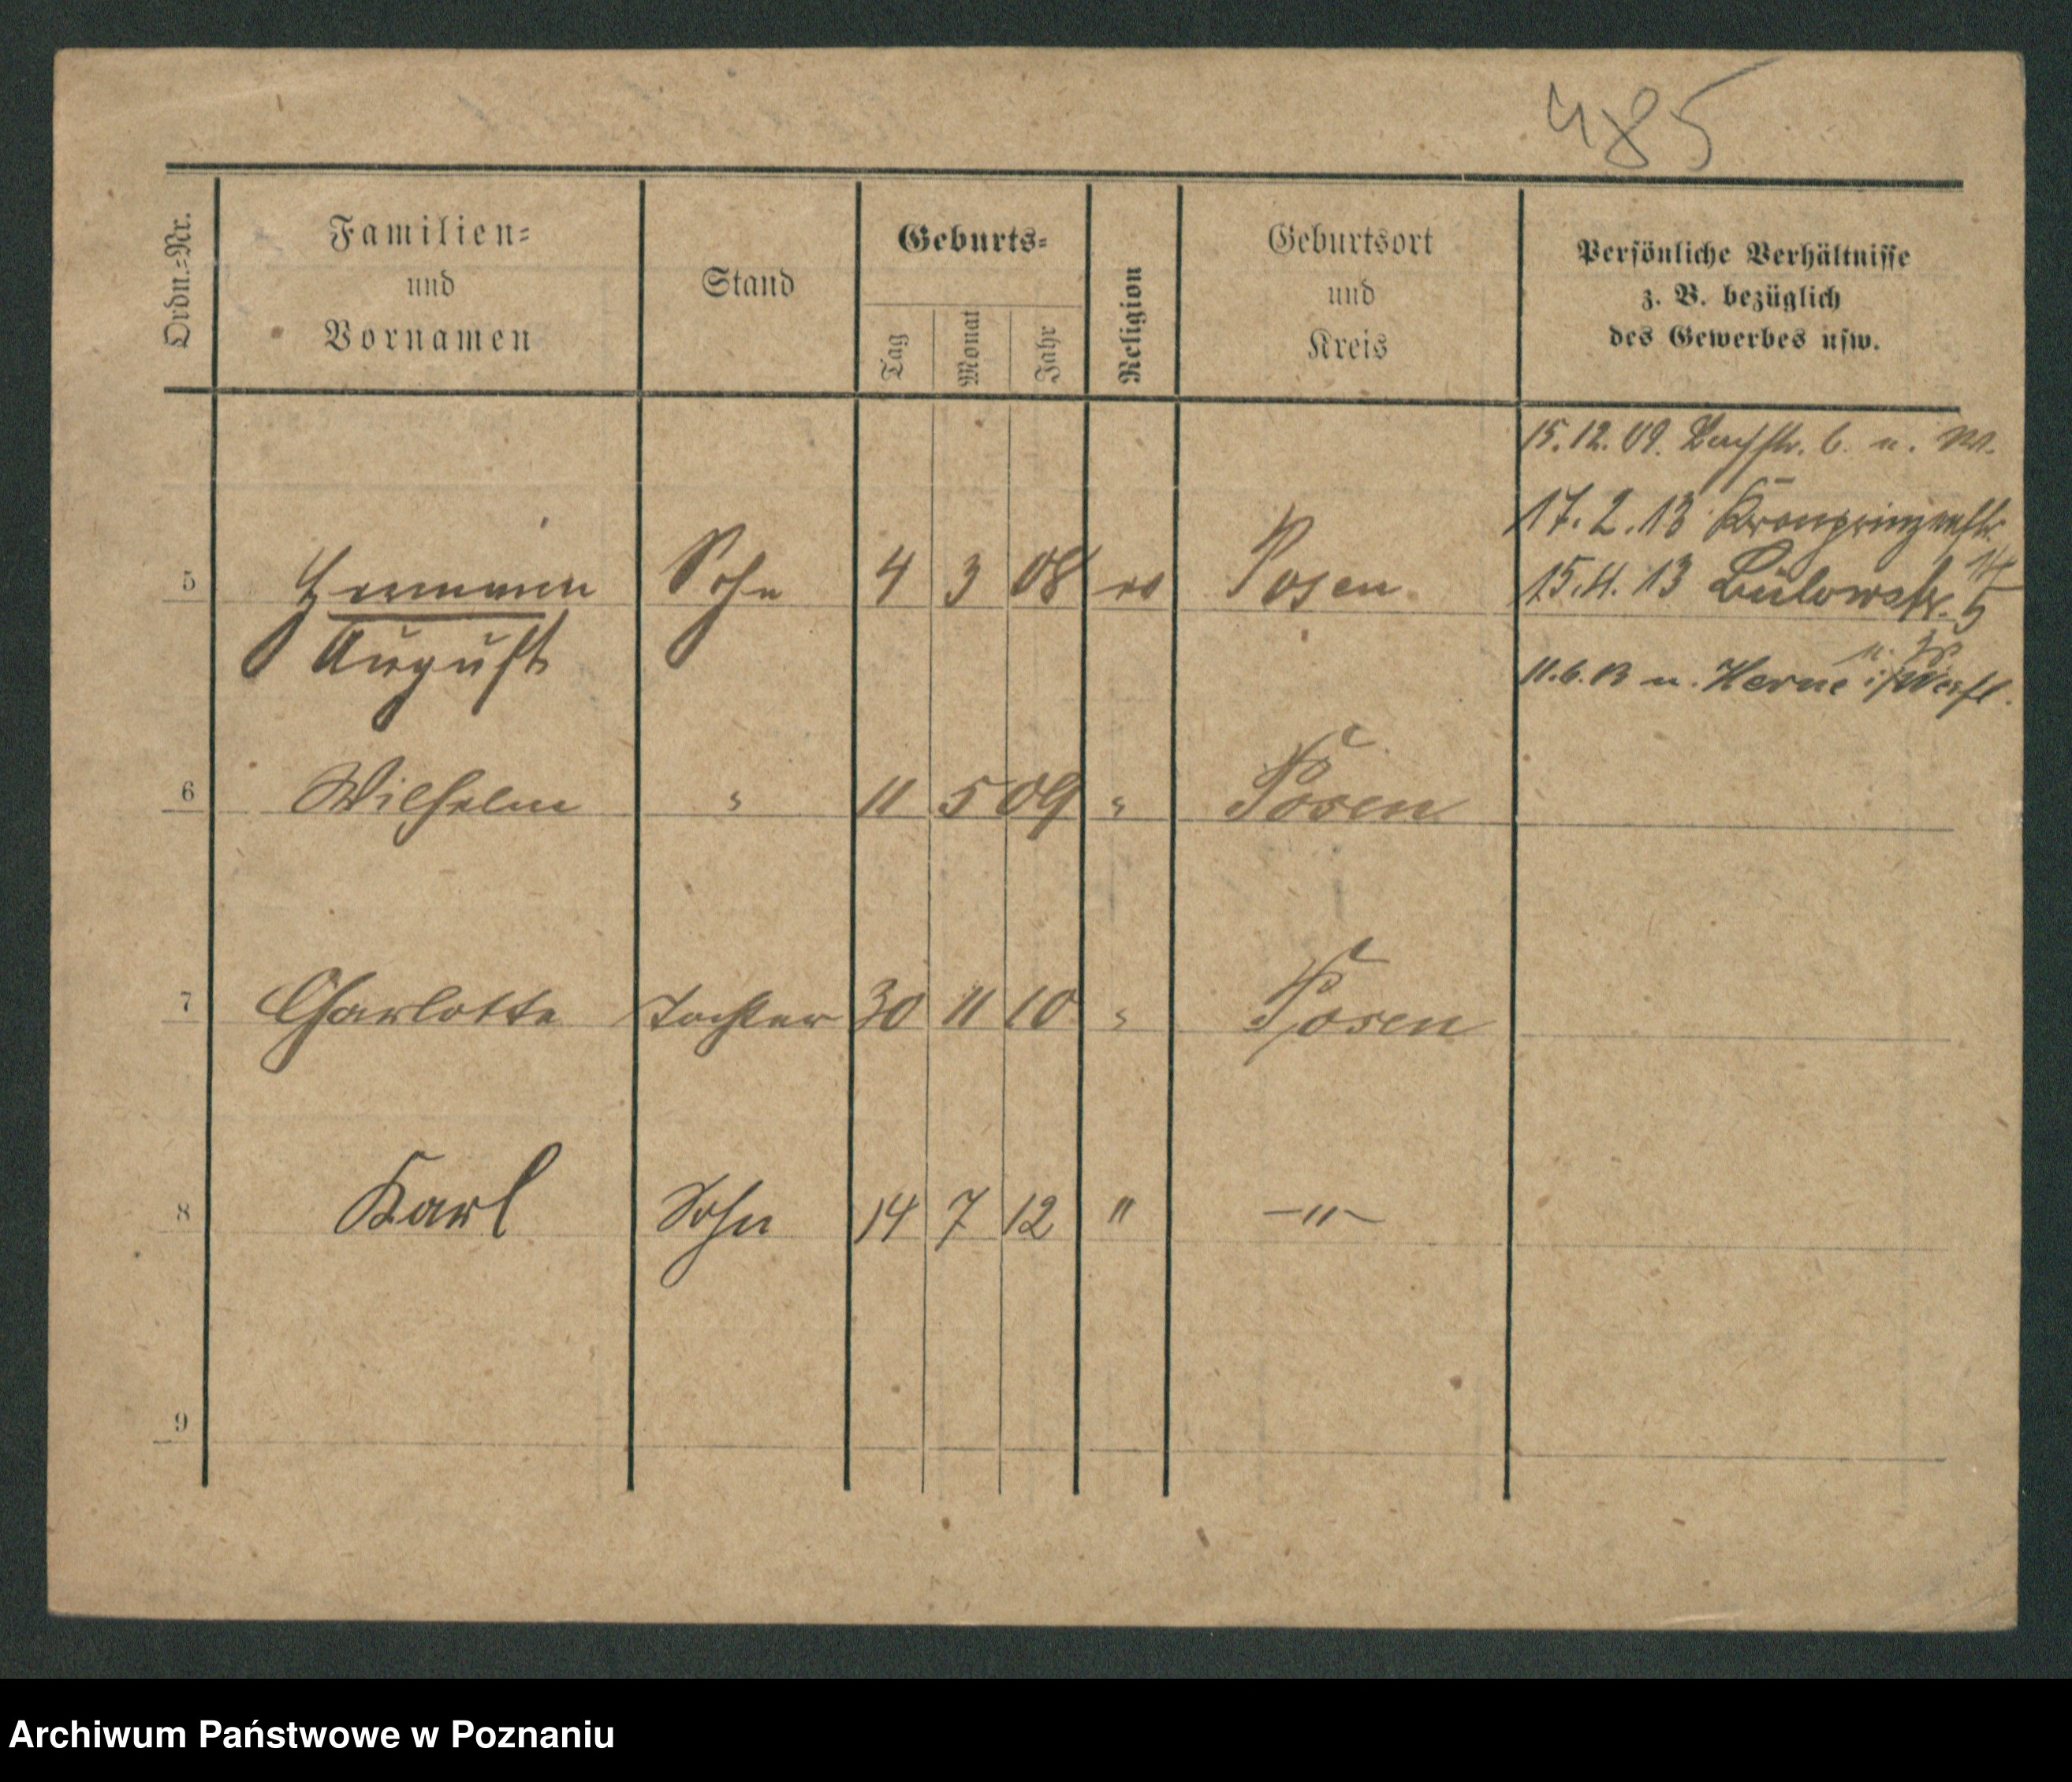 485
Ordn.=Nr.
Familien=
und
Vornamen
Stand
Geburts=
Tag
Monat
Jahr
Religion
Geburtsort
und
Kreis
Persönliche Verhältnisse
z. B. bezüglich
des Gewerbes usw.
15. 12. 09. 6. n. W.
17. 2. 13 Kronprinzenstr.
14
5 Hermann Sohn 4 3 08 Posen 15.4.13 Bülowstr. 5
August
11.6.13 n. Herne i/Westf.
6 Wilhelm " 11 5 09 " Posen
7 Charlotte Tochter 30 11 10 " Posen
8 Karl Sohn 14 7 12 " –"–
9
Archiwum Państwowe w Poznaniu